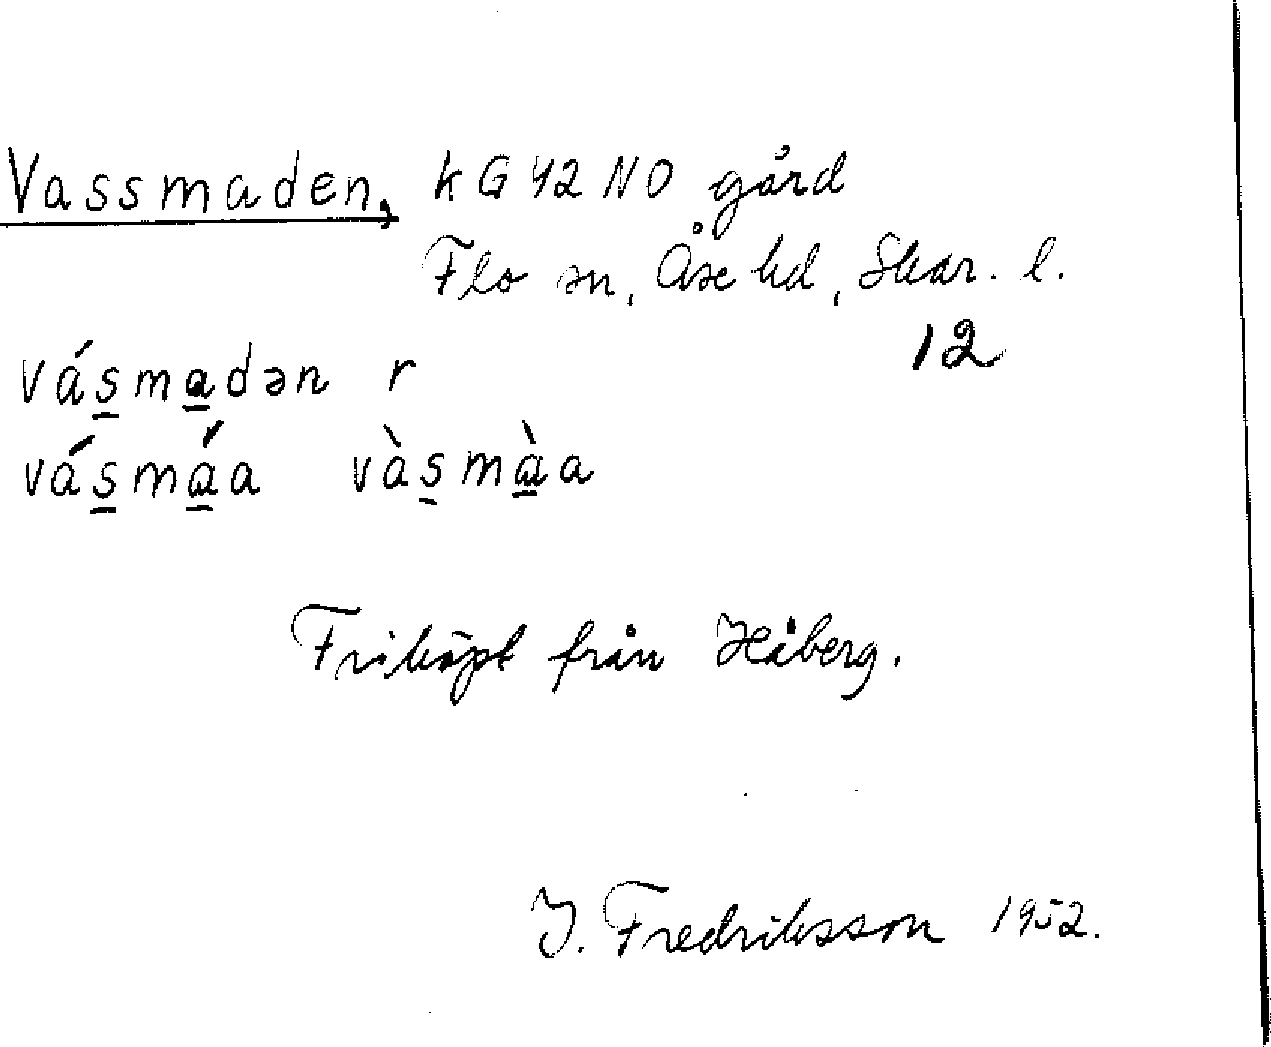 Vassmaden, kG 42 NO gård
Flo sn, Åse hd, Skar. l.
12
vás̲ma̲dən r
vás̲má̲a vàs̲mà̲a
Friköpt från Håberg.
J. Fredriksson 1952.